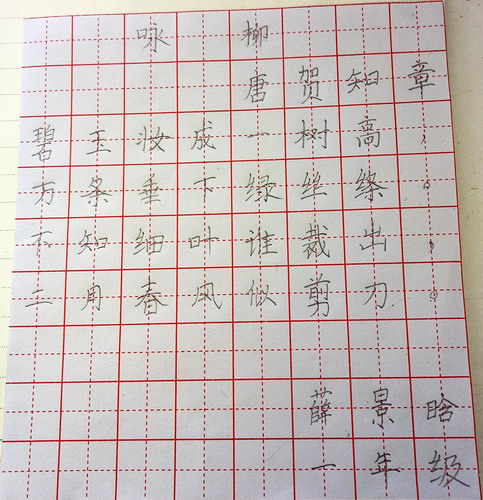 咏柳
唐贺知章
碧玉妆成一树高，
万条垂下绿丝绦。
不知细叶谁裁出，
二月春风似剪刀。
薛景晗
一年级